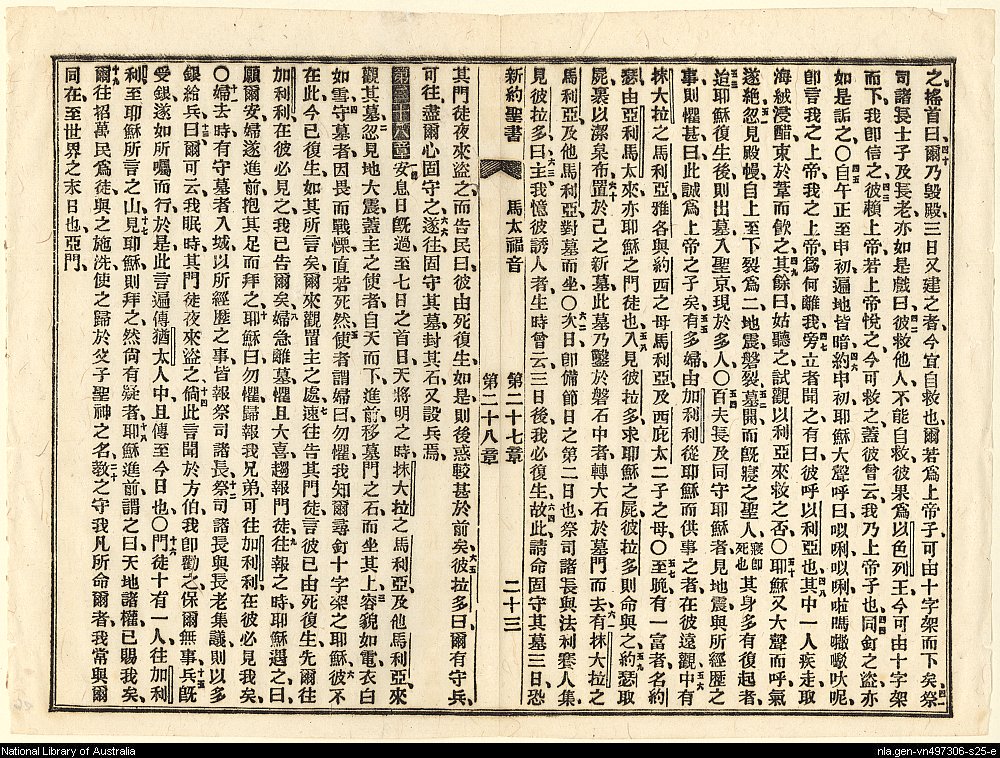 之搖首曰爾乃毀殿三日又建之者今宜自救也爾若爲上帝子可由十字架而下矣祭
司諸長士子及長老亦如是戲曰彼救他人不能自救彼果爲以色列王今可由十字架
而下我卽信之彼賴上帝若上帝悅之今可救之蓋彼曾云我乃上帝子也同釘之盜亦
如是詬之〇自午正至申初遍地皆暗約申初耶穌大聲呼曰㕽唎㕽唎啦嗎㘔㗶吠呢
卽言我之上帝我之上帝爲何離我旁立者聞之有曰彼呼以利亞也其中一人疾走取
海絨浸醋束於葦而飮之其餘曰姑聽之試觀以利亞來救之否〇耶穌又大聲而呼氣
遂絕忽見殿幔自上至下裂爲二地震磐裂墓開而旣寢之聖人寢卽死也其身多有復起者
迨耶穌復生後則出墓入聖京現於多人〇百夫長及同守耶穌者見地震與所經歷之
事則懼甚曰此誠爲上帝之子矣有多婦由加利利從耶穌而供事之者在彼遠觀中有
抹大拉之馬利亞雅各與約西之母馬利亞及西庇太二子之母〇至晚有一富者名約
瑟由亞利馬太來亦耶穌之門徒也入見彼拉多求耶穌之屍彼拉多則命與之約瑟取
屍裹以潔枲布置於己之新墓此墓乃鑿於磐石中者轉大石於墓門而去有抹大拉之
馬利亞及他馬利亞對墓而坐〇次日卽備節日之第二日也祭司諸長與法利賽人集
見彼拉多曰主我憶彼誘人者生時曾云三日後我必復生故此請命固守其墓三日恐
新約聖書 馬太福音 第二十七章 第二十八章 二十三
其門徒夜來盜之而告民曰彼由死復生如是則後惑較甚於前矣彼拉多曰爾有守兵
可往盡爾心固守之遂往固守其墓封其石又設兵焉
第二十八章 安息日旣過至七日之首日天將明之時抹大拉之馬利亞及他馬利亞來
觀其墓忽見地大震蓋主之使者自天而下進前移墓門之石而坐其上容貌如電衣白
如雪守墓者因畏而戰慄直若死然使者謂婦曰勿懼我知爾尋釘十字架之耶穌彼不
在此今已復生如其所言矣爾來觀置主之處速往告其門徒言彼已由死復生先爾往
加利利在彼必見之我已告爾矣婦急離墓懼且大喜趨報門徒往報之時耶穌遇之曰
願爾安婦遂進前抱其足而拜之耶穌曰勿懼歸報我兄弟可往加利利在彼必見我矣
〇婦去時有守墓者入城以所經歷之事皆報祭司諸長祭司諸長與長老集議則以多
銀給兵曰爾可云我眠時其門徒夜來盜之倘此言聞於方伯我卽勸之保爾無事兵旣
受銀遂如所囑而行於是此言遍傳猶太人中且傳至今日也〇門徒十有一人往加利
利至耶穌所言之山見耶穌則拜之然尙有疑者耶穌進前謂之曰天地諸權已賜我矣
爾往招萬民爲徒與之施洗使之歸於父子聖神之名敎之守我凡所命爾者我常與爾
同在至世界之末日也亞門
National Library of Australia
nla.gen-vn497306-s25-e